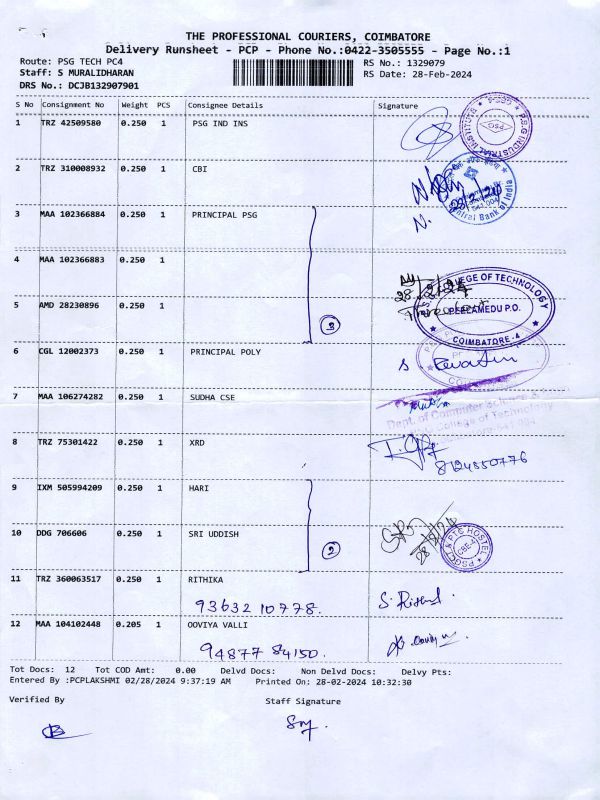 THE PROFESSIONAL COURIERS, COIMBATORE
Delivery Runsheet - PCP - Phone No.:0422-3505555 - Page No.:1
Route: PSG TECH PC4 RS No.: 1329079
Staff: S MURALIDHARAN RS Date: 28-Feb-2024
DRS No.: DCJB132907901
S No Consignment No Weight PCS Consignee Details Signature
1 TRZ 42509580 0.250 1 PSG IND INS
P.S.G INDUSTRIAL INSTITUTE
PSG
2 TRZ 310008932 0.250 1 CBI
28/2/24
Central Bank of India
N.
3 MAA 102366884 0.250 1 PRINCIPAL PSG
4 MAA 102366883 0.250 1
28/2/24
COLLEGE OF TECHNOLOGY
5 AMD 28230896 0.250 1
3
PEELAMEDU P.O.
COIMBATORE-4
6 CGL 12002373 0.250 1 PRINCIPAL POLY
7 MAA 106274282 0.250 1 SUDHA CSE
Dept. of Computer Science &
College of Technology
8 TRZ 75301422 0.250 1 XRD
8124850776
9 IXM 505994209 0.250 1 HARI
10 DDG 706606 0.250 1 SRI UDDISH
2
28/2/24
HOSTEL
CBE-4
11 TRZ 360063517 0.250 1 RITHIKA
93632 10778.
12 MAA 104102448 0.205 1 OOVIYA VALLI
94877 84150.
Tot Docs: 12 Tot COD Amt: 0.00 Delvd Docs: Non Delvd Docs: Delvy Pts:
Entered By :PCPLAKSHMI 02/28/2024 9:37:19 AM Printed On: 28-02-2024 10:32:30
Verified By Staff Signature